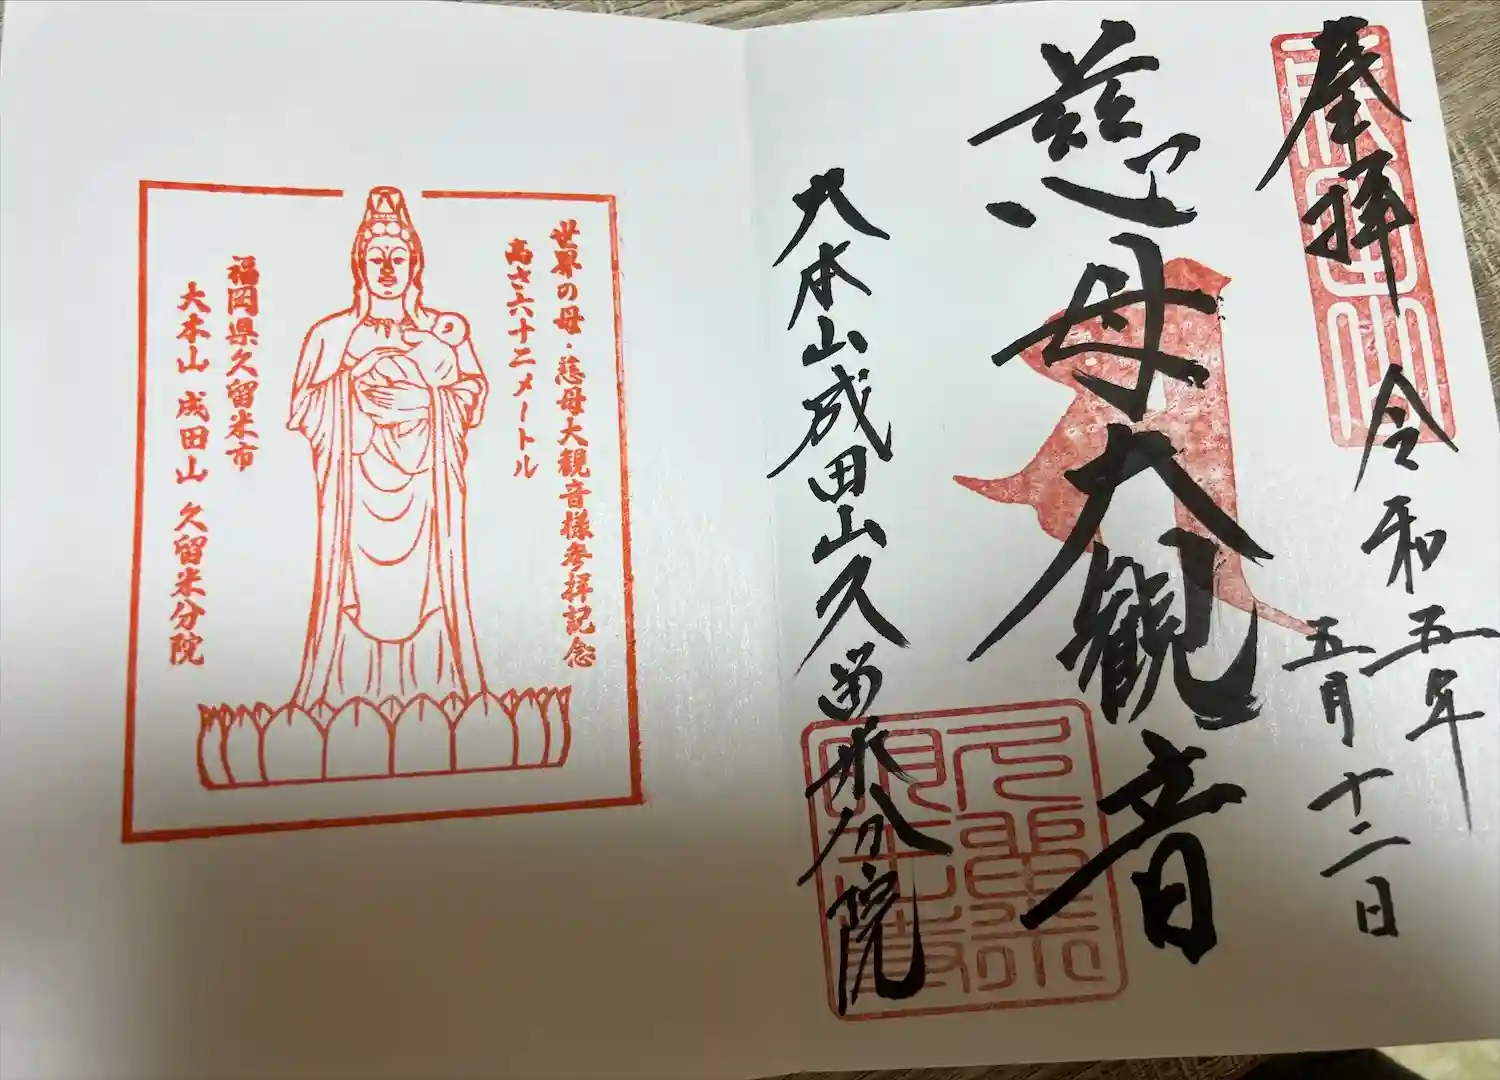 奉拝
令和五年
五月十二日
慈母大観音
大本山成田山久留米分院
成田山
世界の母・慈母大観音様参拝記念
高さ六十二メートル
福岡県久留米市
大本山 成田山 久留米分院